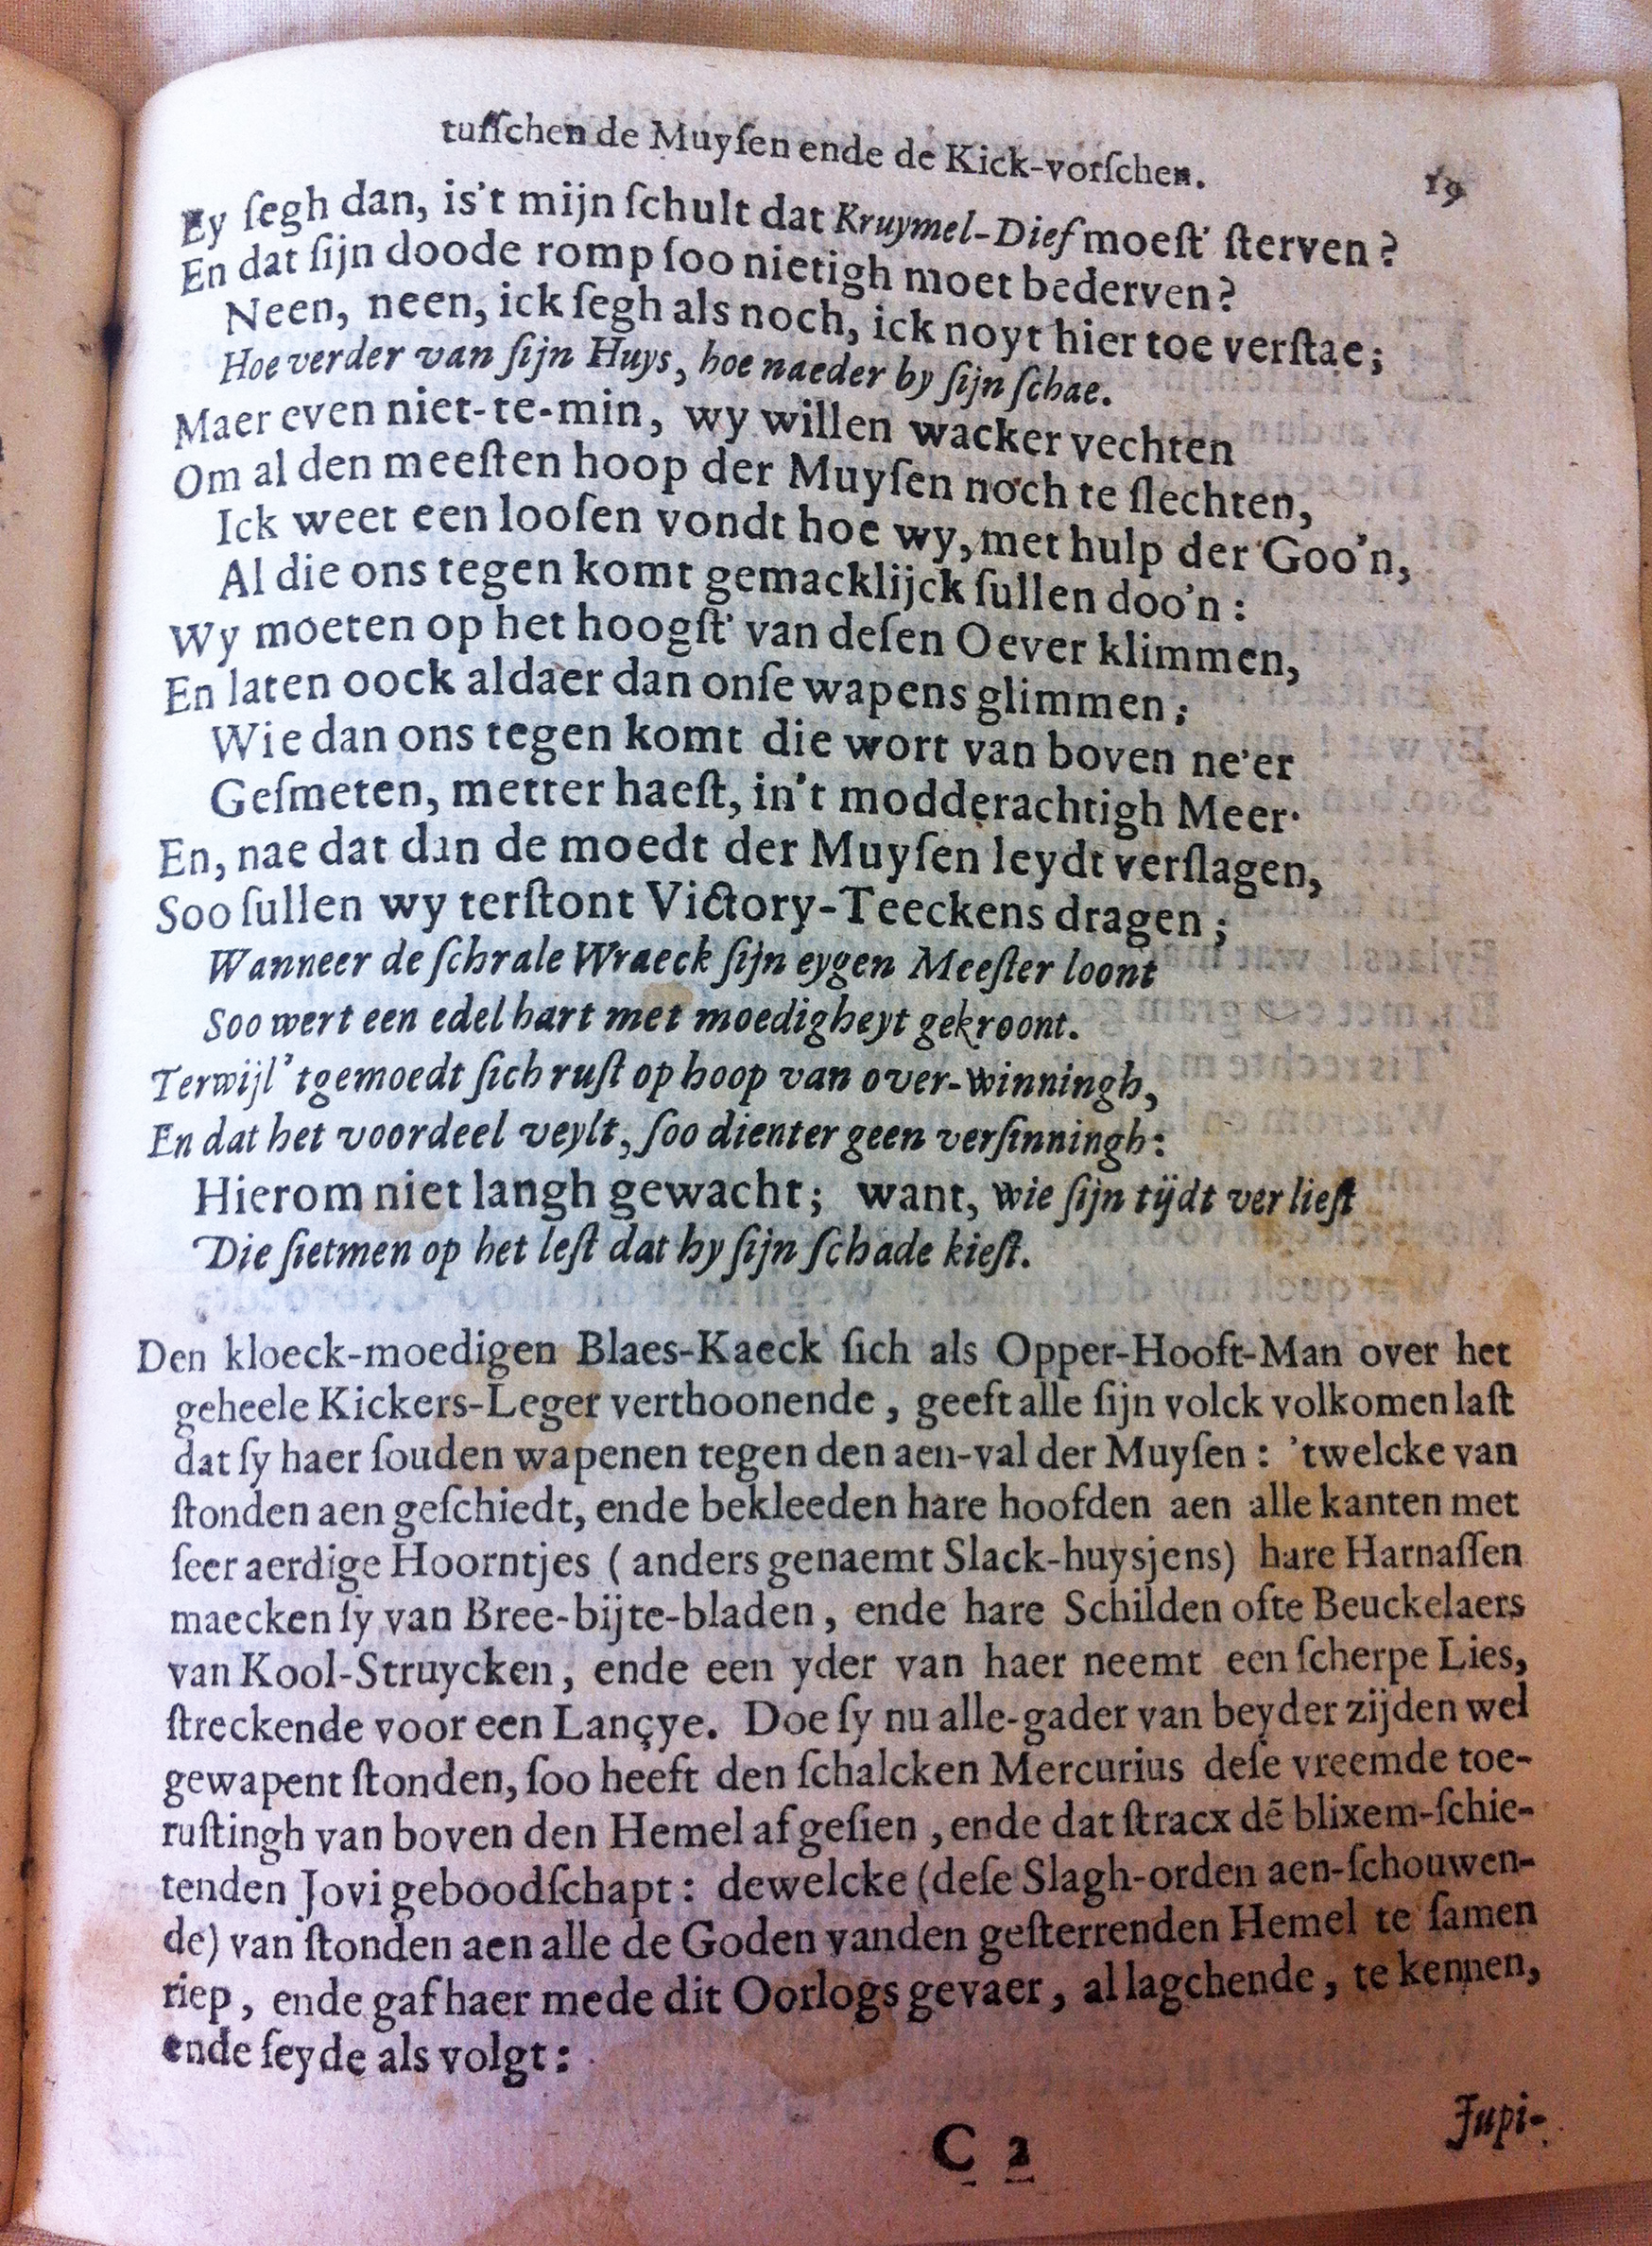 tuſſchen de Muyſen ende de Kick-vorſchen. 19
Ey ſegh dan, is't mijn ſchult dat Kruymel-Dief moeſt' ſterven?
En dat ſijn doode romp ſoo nietigh moet bederven?
Neen, neen, ick ſegh als noch, ick noyt hier toe verſtae;
Hoe verder van ſijn Huys, hoe naeder by ſijn ſchae.
Maer even niet-te-min, wy willen wacker vechten
Om al den meeſten hoop der Muyſen noch te ſlechten,
Ick weet een looſen vondt hoe wy, met hulp der Goo'n,
Al die ons tegen komt gemacklijck ſullen doo'n:
Wy moeten op het hoogſt' van deſen Oever klimmen,
En laten oock aldaer dan onſe wapens glimmen;
Wie dan ons tegen komt die wort van boven ne'er
Geſmeten, metter haeſt, in't modderachtigh Meer.
En, nae dat dan de moedt der Muyſen leydt verſlagen,
Soo ſullen wy terſtont Victory-Teeckens dragen;
Wanneer de ſchrale Wraeck ſijn eygen Meeſter loont
Soo wert een edel hart met moedigheyt gekroont.
Terwijl 'tgemoedt ſich ruſt op hoop van over-winningh,
En dat het voordeel veylt, ſoo dienter geen verſinningh:
Hierom niet langh gewacht; want, wie ſijn tijdt verlieſt
Die ſietmen op het leſt dat hy ſijn ſchade kieſt.
Den kloeck-moedigen Blaes-Kaeck ſich als Opper-Hooft-Man over het
geheele Kickers-Leger verthoonende, geeft alle ſijn volck volkomen laſt
dat ſy haer ſouden wapenen tegen den aen-val der Muyſen: 'twelcke van
ſtonden aen geſchiedt, ende bekleeden hare hoofden aen alle kanten met
ſeer aerdige Hoorntjes (anders genaemt Slack-huysjens) hare Harnaſſen
maecken ſy van Bree-bijte-bladen, ende hare Schilden ofte Beuckelaers
van Kool-Struycken, ende een yder van haer neemt een ſcherpe Lies,
ſtreckende voor een Lançye. Doe ſy nu alle-gader van beyder zijden wel
gewapent ſtonden, ſoo heeft den ſchalcken Mercurius deſe vreemde toe-
ruſtingh van boven den Hemel af geſien, ende dat ſtracx dẽ blixem-ſchie-
tenden Jovi geboodſchapt: dewelcke (deſe Slagh-orden aen-ſchouwen-
de) van ſtonden aen alle de Goden vanden geſterrenden Hemel te ſamen
riep, ende gaf haer mede dit Oorlogs gevaer, al lagchende, te kennen,
ende ſeyde als volgt:
C 2 Jupi-